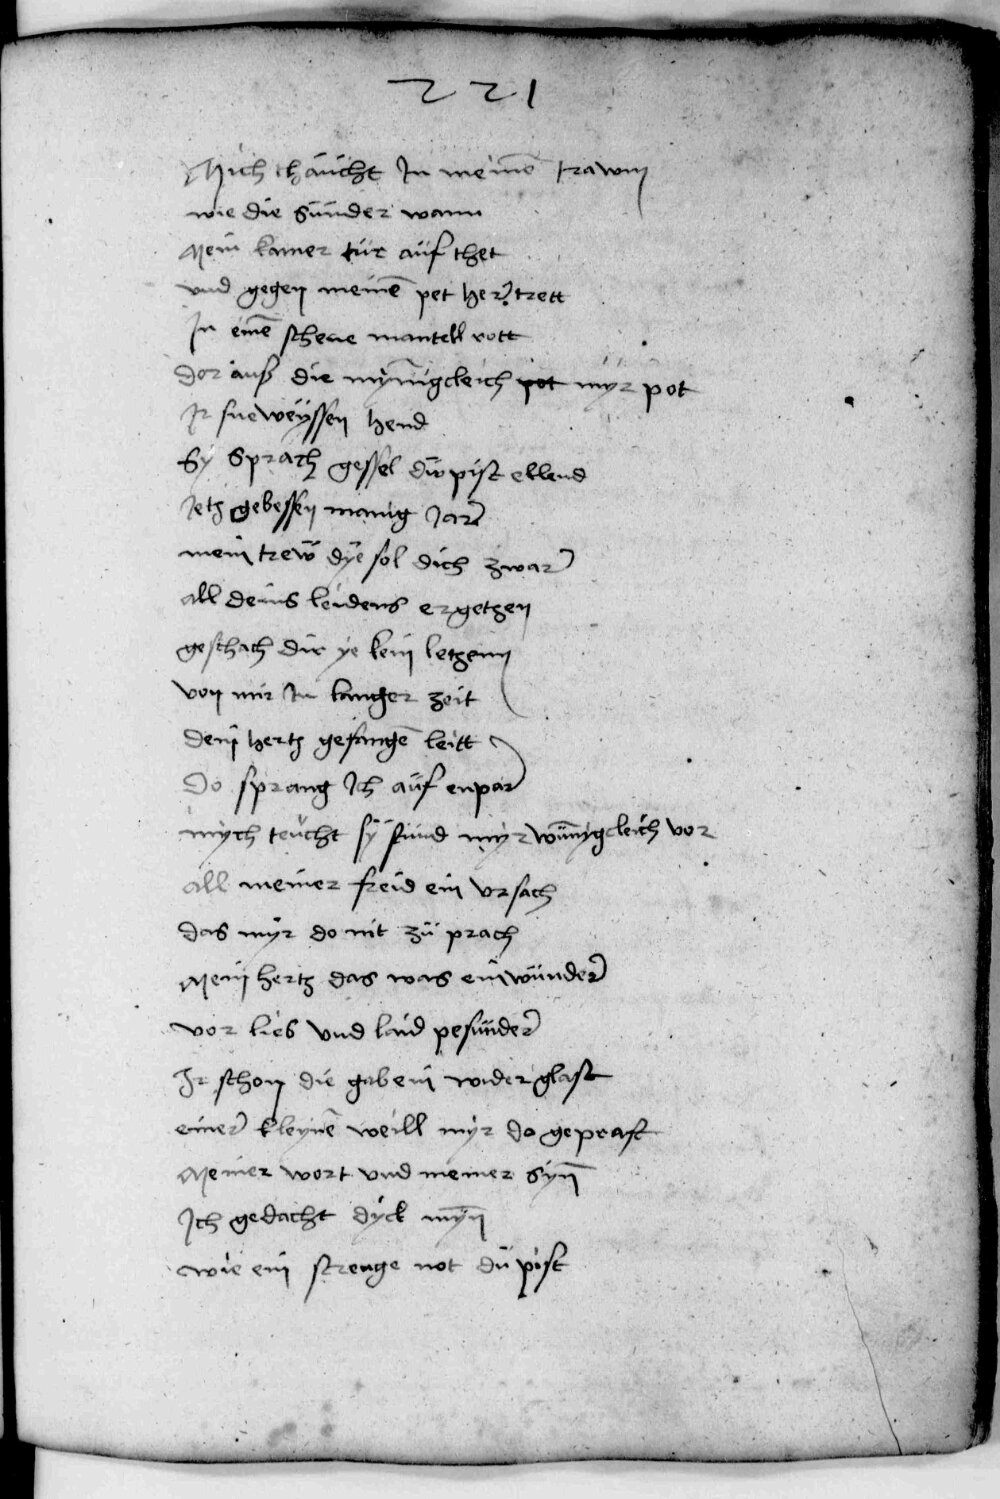 221
Mich thaücht In meinē trawm
wie die Sünder wann
Mein kamer tür aüf thet
vnd gegen meinē pet her trett
In einē schene mantell rott
dor auß die mynnigcleich pot myr pot
Ir sneweyssen hend
Sy Sprach gessel du pist ellend
Ietz gebessen manig Jar
mein trew dye sol dich zwar
all deins leidens ergetzen
geschach dir ye kein letzenn
von mir In langer zeit
dein hertz gefangē leitt
Do sprang Ich aüf enpar
mych teücht sy stünd myr wünnygcleich vor
all meiner freid ein vrsach
das myr do nit zü prach
Mein hertz das was ein wünder
vor lieb vnd laid pesünder
Ir schon die gab ein wider glast
einer kleynē weill myr do geprast
Meiner wort vnd meiner syn̄
Ich gedacht dyck myn̄
wie ein strenge not dü pist